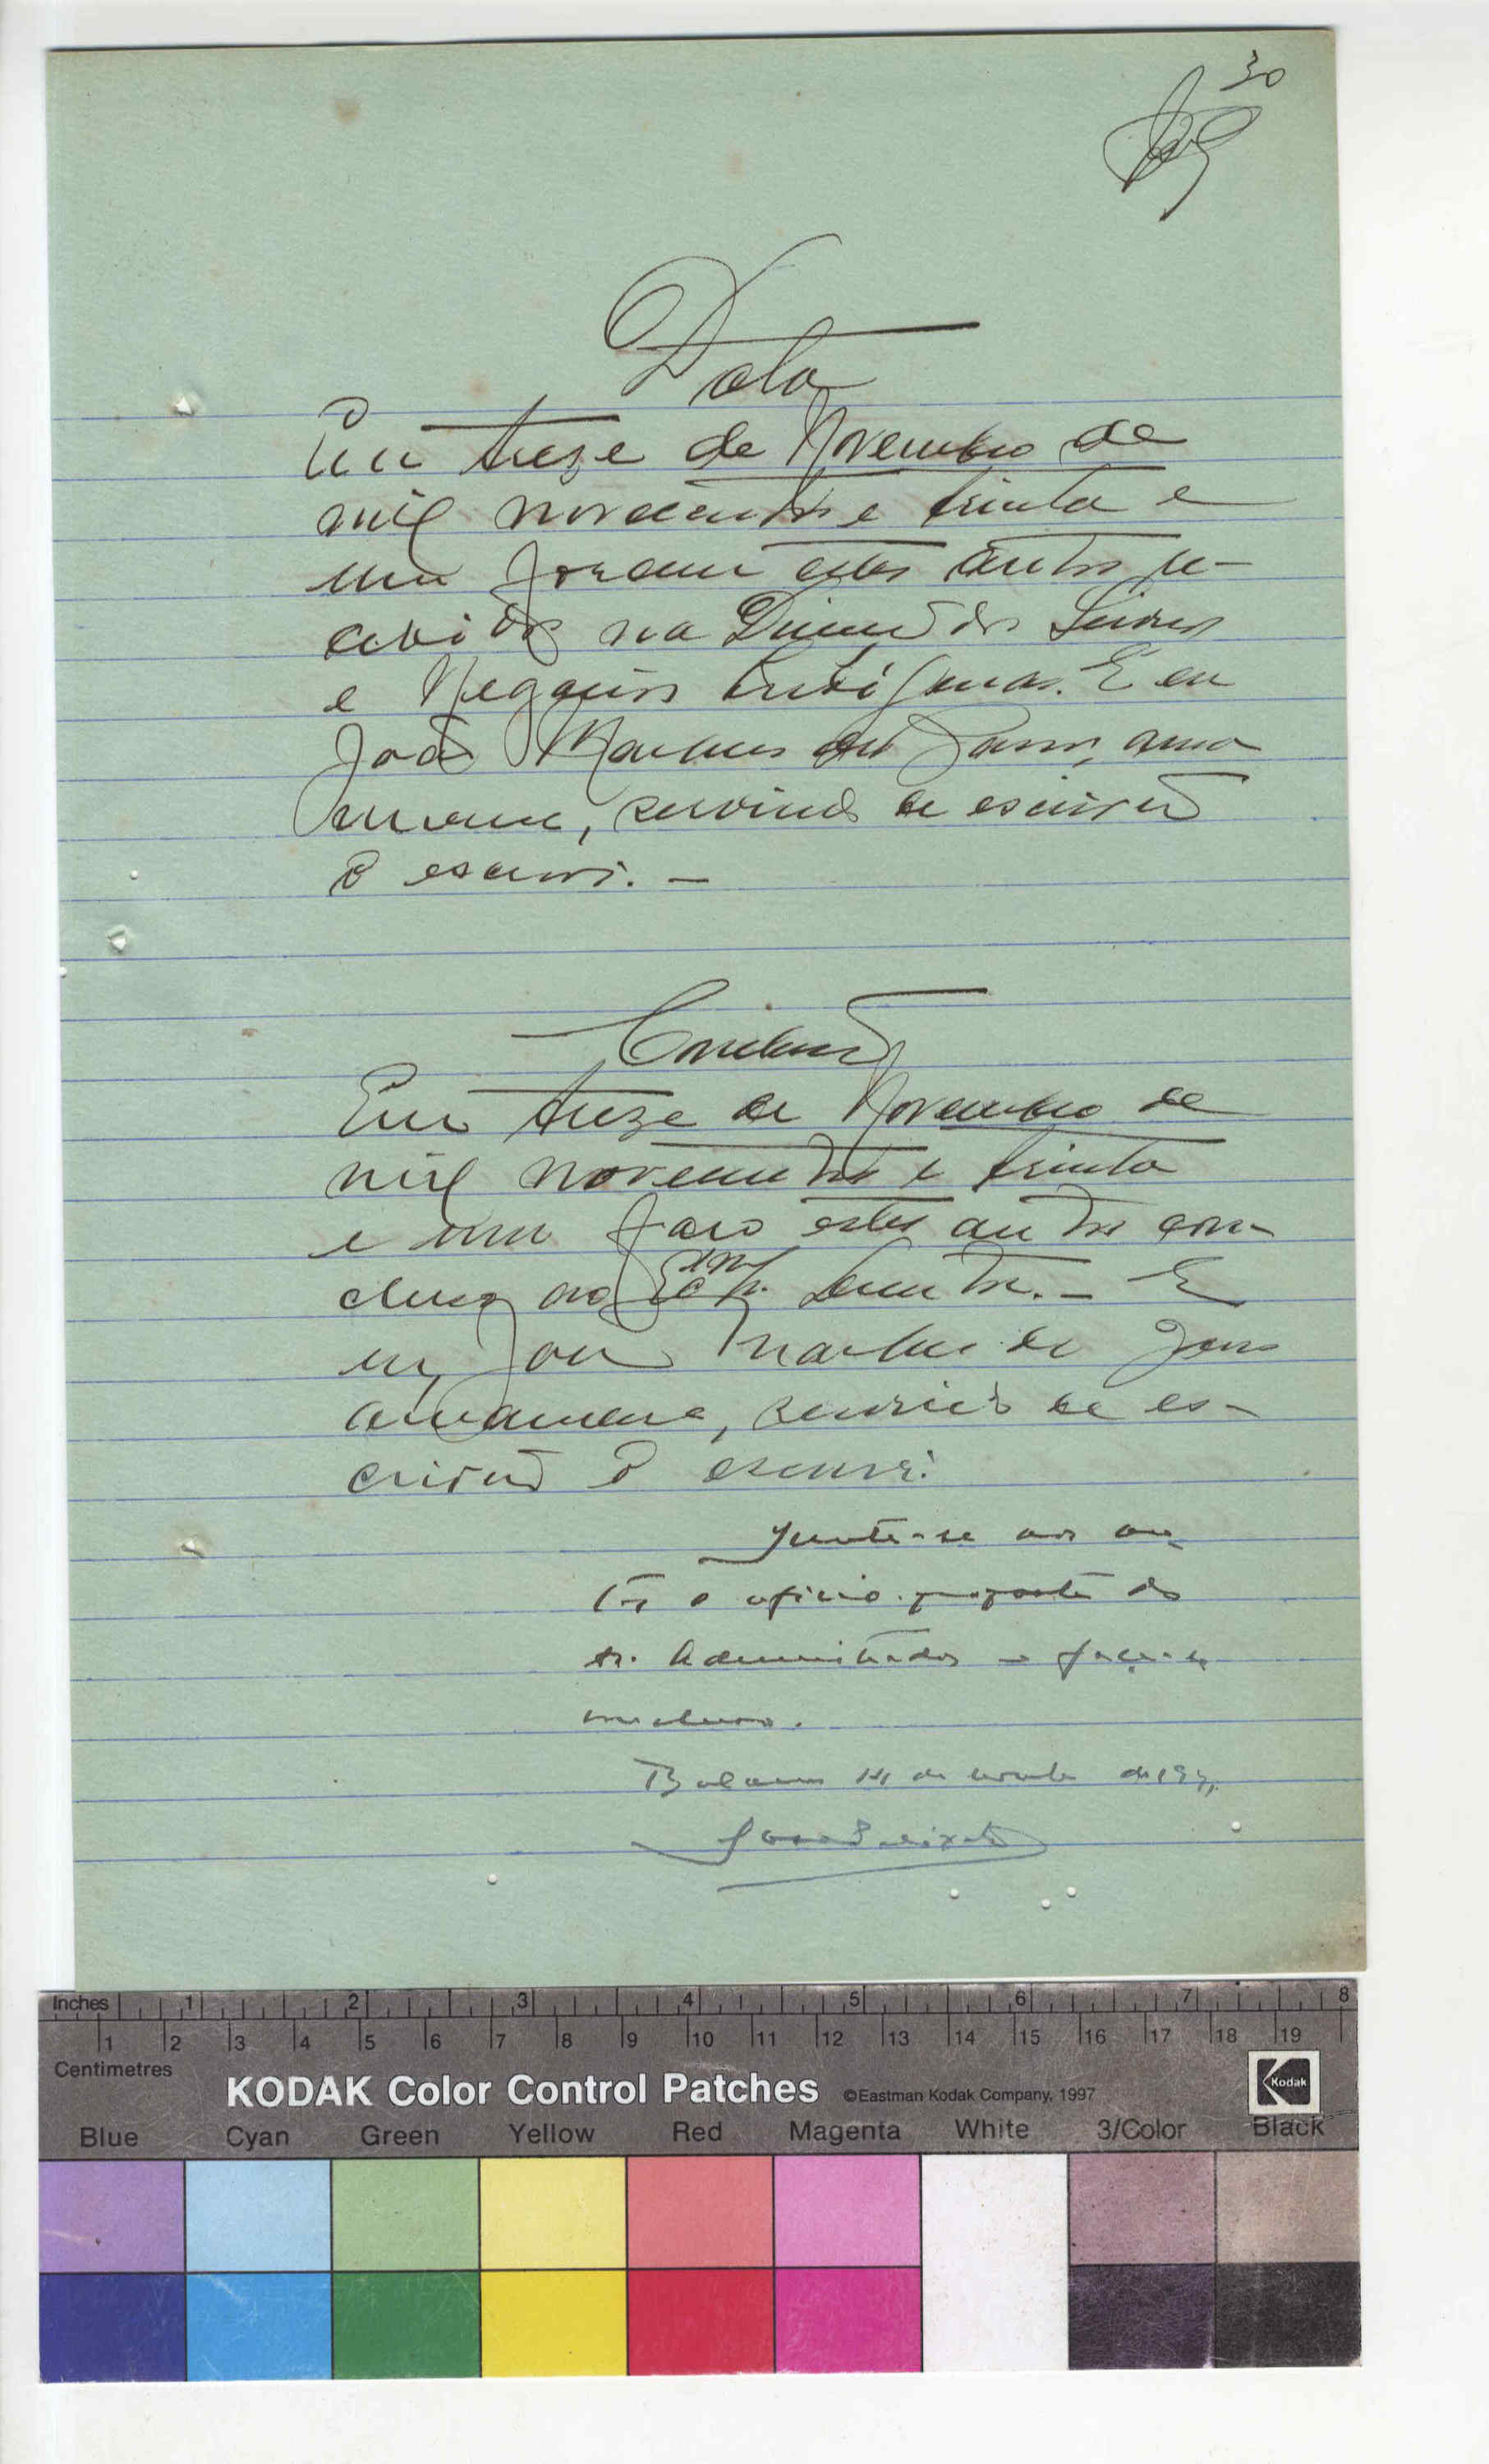 30
Data
Em treze de Novembro de
mil novecentos e trinta e
um foram estes autos re-
cebidos na Directoria dos
e Negocios Indigenas. E eu
João Marques de
servindo de escrivão
o escrevi. —
Conclusão
Em treze de Novembro de
mil novecentos e trinta
e um faço estes autos con-
clusos ao Exmº Sr. — E
eu, João Marques de
servindo de es-
crivão o escrevi.
Junte-se aos au-
tos o oficio proposta do
Sr. Administrador e faça-se
concluso.
14 de de 1931
Inches 1 2 3 4 5 6 7 8
1 2 3 4 5 6 7 8 9 10 11 12 13 14 15 16 17 18 19
Centimetres
KODAK Color Control Patches ©Eastman Kodak Company, 1997 Kodak
Blue Cyan Green Yellow Red Magenta White 3/Color Black